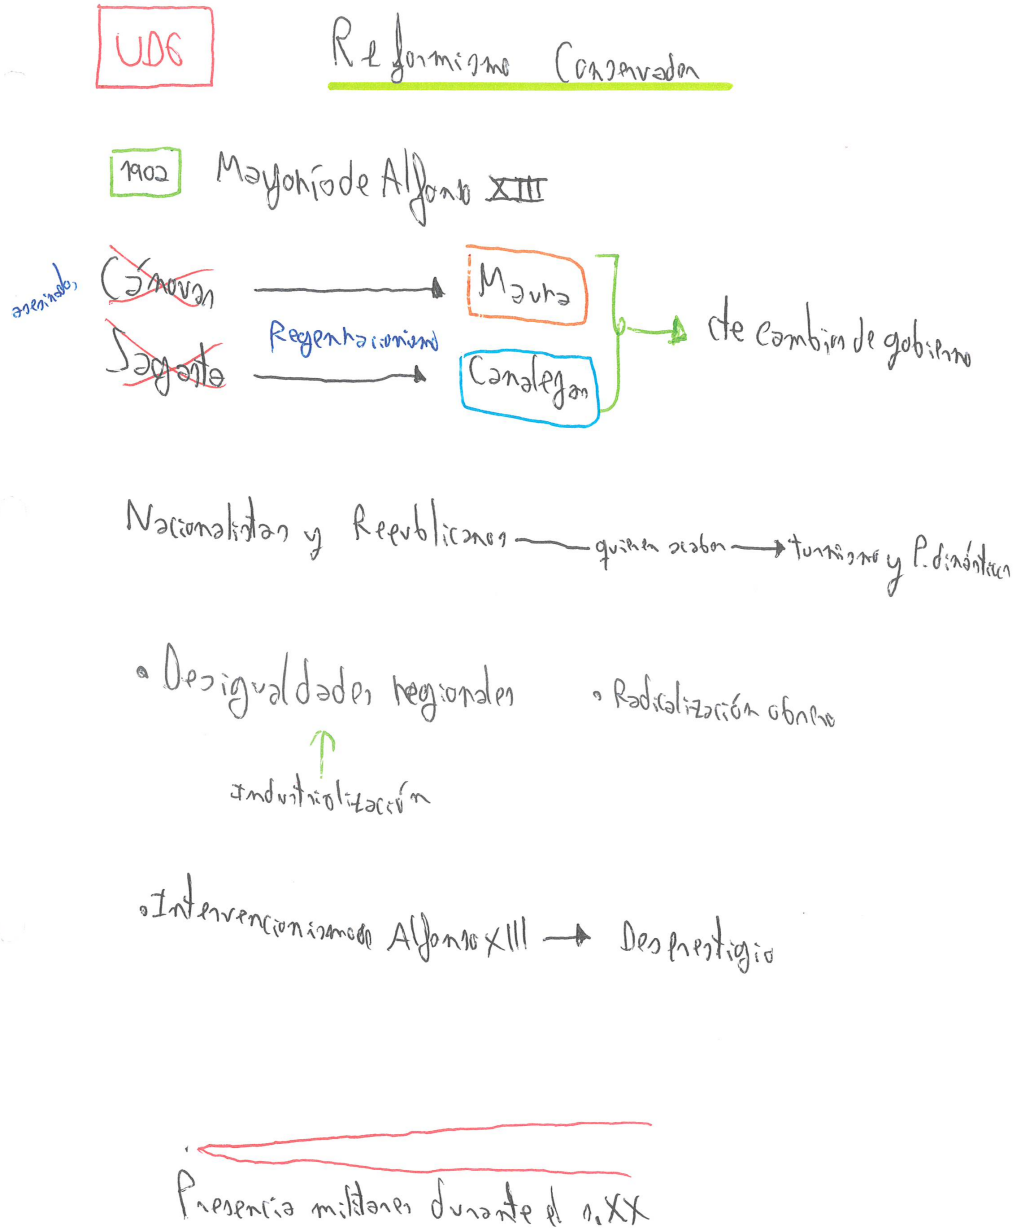 UD6
Reformismo Conservador
1902 Mayoría de Alfonso XIII
asesinado,
Cánovas Maura
Regeneracionismo
Sagasta Canalejas
cte cambios de gobierno
Nacionalistas y Republicanos quieren acabar turnismo y P. dinásticos
• Desigualdades regionales • Radicalización obrero
Industrialización
• Intervencionismo de Alfonso XIII Desprestigio
Presencia militares durante el s. XX